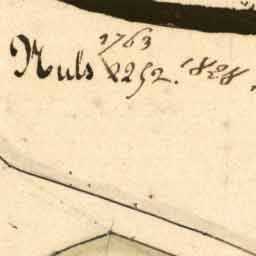 1763
Nuls 2252. 1828.